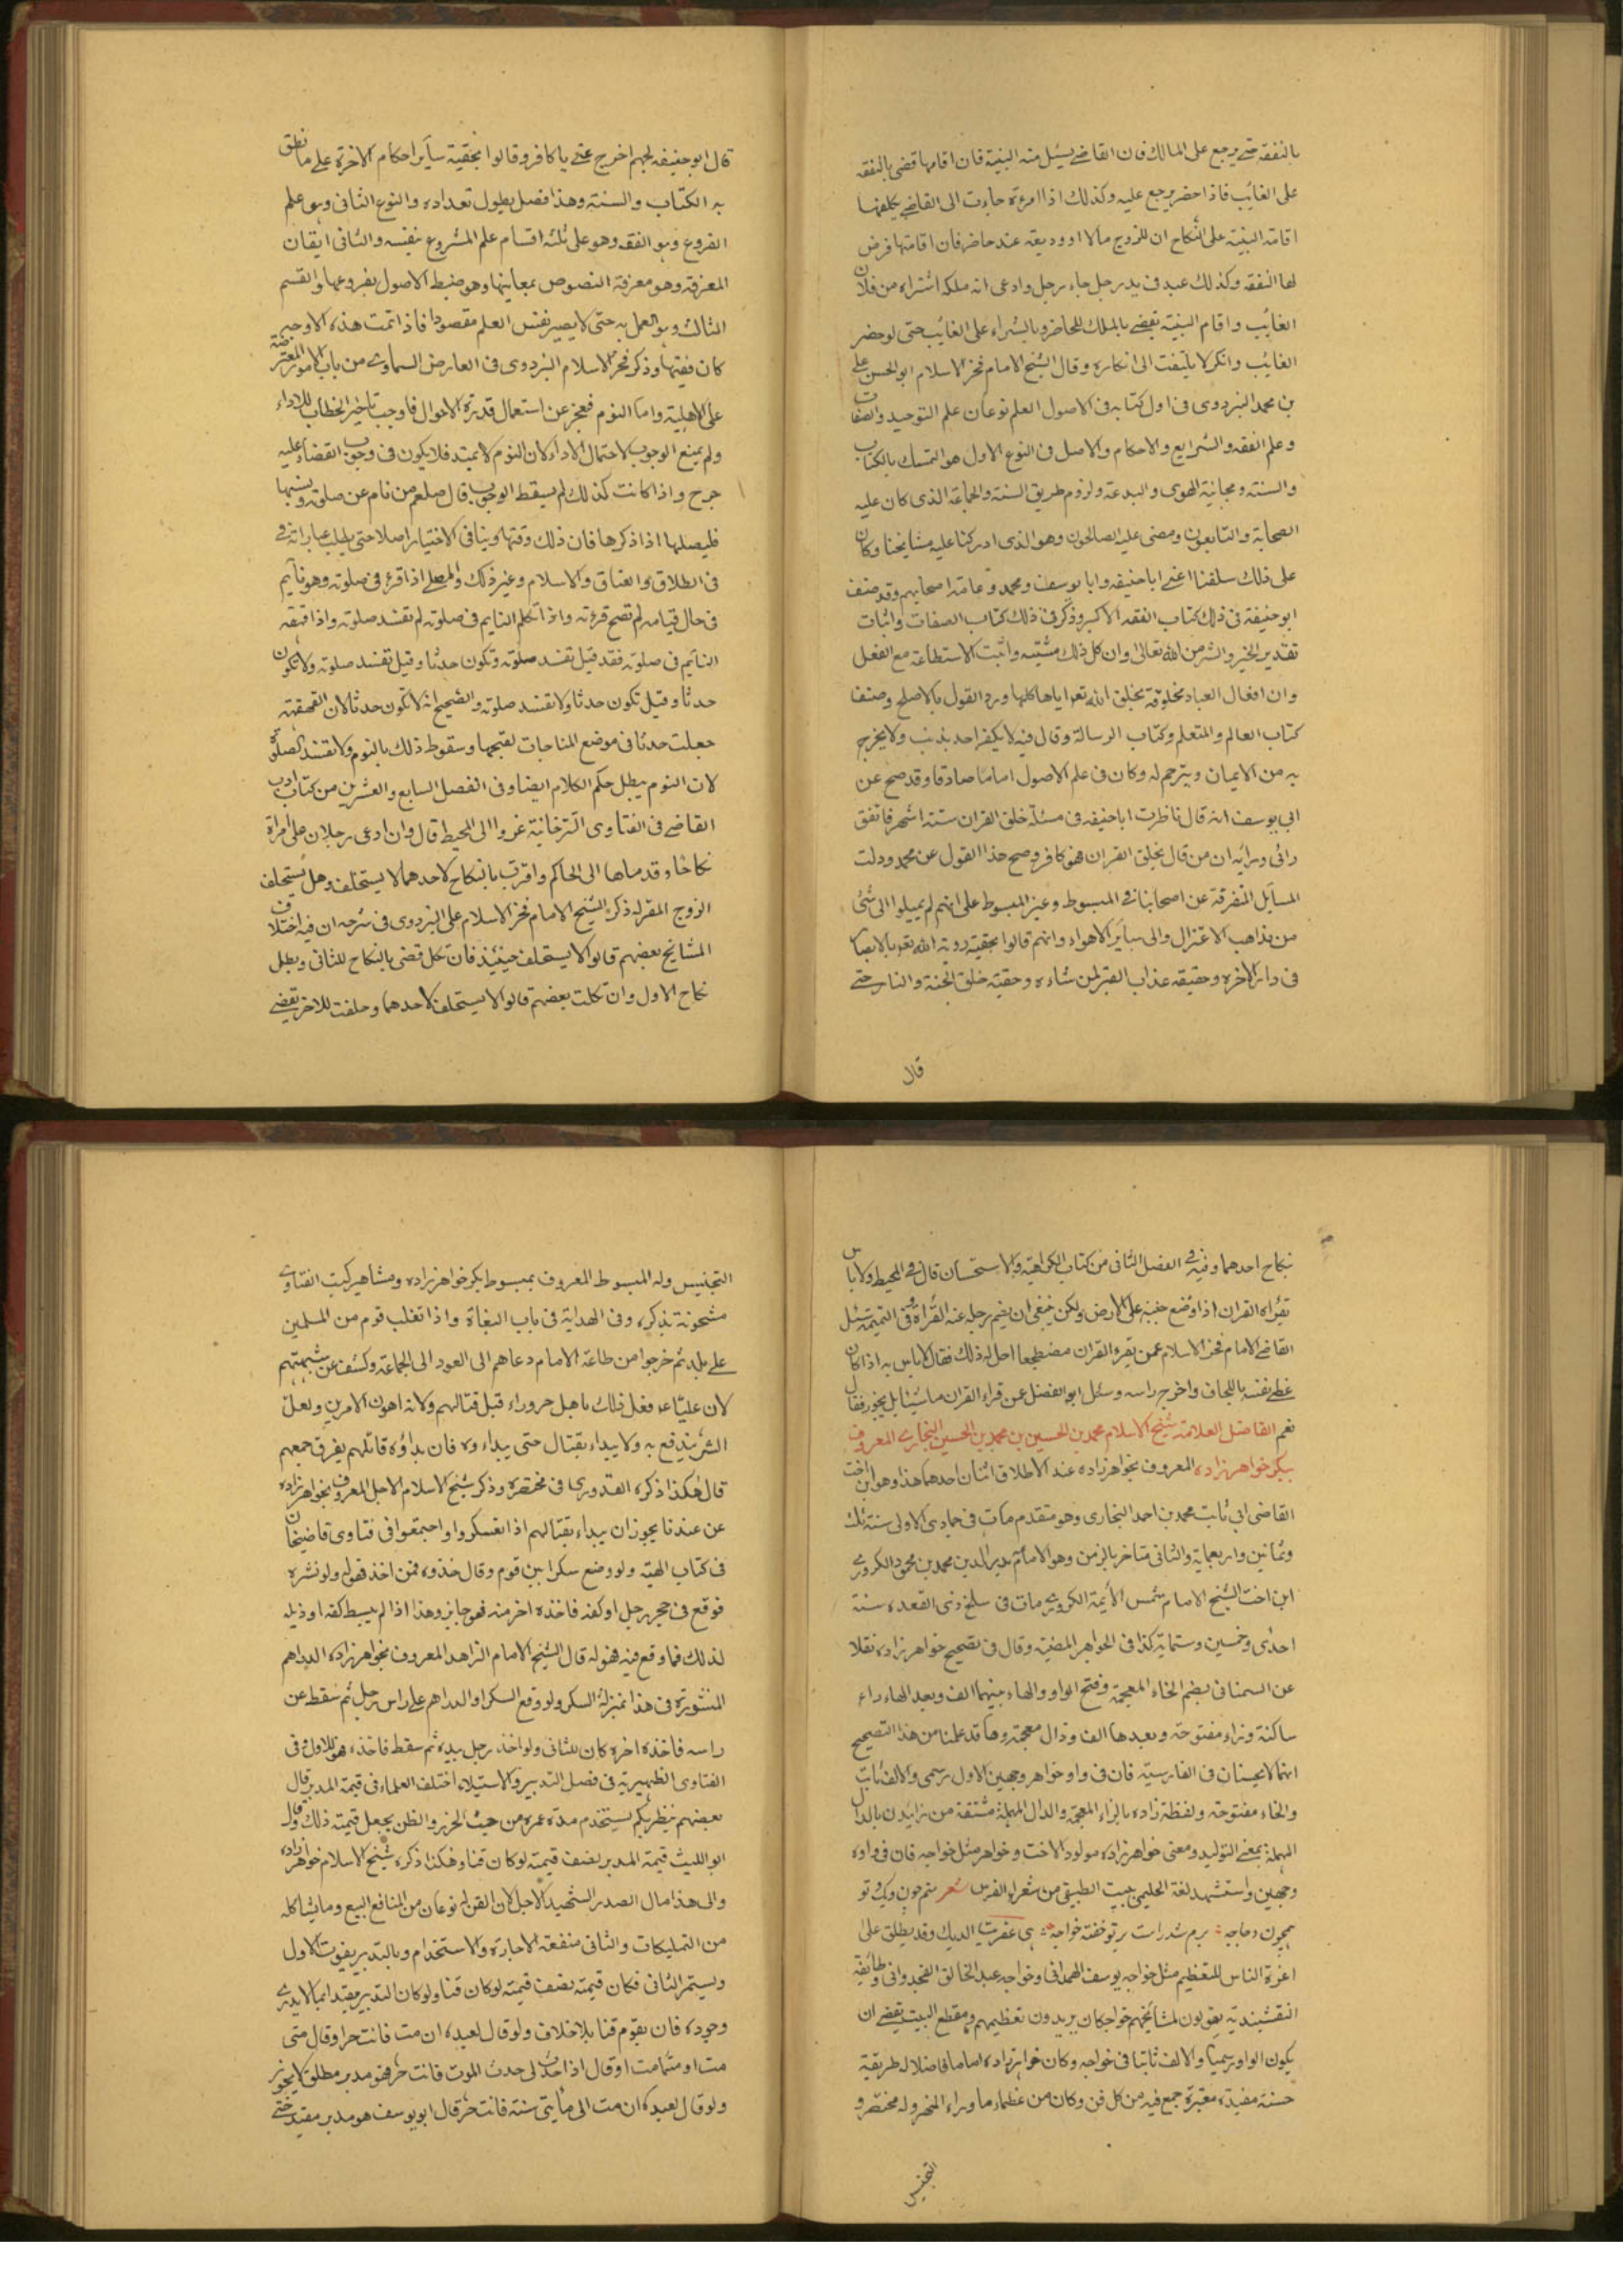 بالنفقة حتى يرجع على المالك فان القاضي يسئل منه البينة فان اقامها قضى بالنفقه
على الغايب فاذا حضر يرجع عليه وكذلك اذا امرءة جاءت الى القاضي يكلفها
اقامة البينة على النكاح ان للزوج مالا او وديعة عند حاضر فان اقامتها فرض
لها النفقه وكذلك عبد في يد رجل جاء رجل وادعى انه ملكه اشتراه من فلان
الغايب واقام البينة يقضي بالملك للحاضر وبالشراء على الغايب حتى لو حضر
الغايب وانكر لا يلتفت الى انكاره وقال الشيخ الامام فخر الاسلام ابو الحسن علي
بن محمد البزدوى فى اول كتابه فى الاصول العلم نوعان علم التوحيد والصفات
وعلم الفقه والشرايع والاحكام والاصل فى النوع الاول هو التمسك بالكتاب
والسنته ومجانبة الهوى والبدعة ولزوم طريق السنة والجماعة الذى كان عليه
الصحابة والتابعون ومضى عليه الصالحون وهو الذى ادركنا عليه مشايخنا وكان
على ذلك سلفنا اعني ابا حنيفه وابا يوسف ومحمد وعامة اصحابهم وقد صنف
ابو حنيفة فى ذلك كتاب الفقه الاكبر وذكر فى ذلك كتاب الصفات واثبات
تقدير الخير والشر من الله تعالى وان كل ذلك مشيته واثبت الاستطاعة مع الفعل
وان افعال العباد مخلوقة بخلق الله تعو اياها كلها ورد القول بالاصلح وصنف
كتاب العالم والمتعلم وكتاب الرسالة وقال فيه لا يكفر احد بذنب ولا يخرج
به من الايمان ويترحم له وكان فى علم الاصول اماما صادقا وقد صح عن
ابى يوسف انه قال ناظرت ابا حنيفه فى مسئلة خلق القران ستة اشهر فاتفق
رائى ورايه ان من قال بخلق القران فهو كافر وصح هذا القول عن محمد ودلت
المسايل المتفرقة عن اصحابنا فى المبسوط وغير المبسوط على انهم لم يميلوا الى شئ
من مذاهب الاعتزال والى ساير الاهواء وانهم قالوا بحقية روية الله تعو بالابصار
فى دار الاخره وحقيقه عذاب القبر لمن شاء وحقية خلق الجنة والنار حتى
قال
قال ابو حنيفه لجهم اخرج عني يا كافر وقالوا بحقية ساير احكام الاخرة على ما نطق
به الكتاب والسنته وهذا فصل يطول تعداده والنوع الثانى وهو علم
الفروع وهو الفقه وهو على ثلثه اقسام علم المشروع بنفسه والثانى ايقان
المعرفة وهو معرفة النصوص بمعانيها وهو ضبط الاصول بفروعها والقسم
الثالث وهو العمل به حتى لا يصير نفس العلم مقصودا فاذا تمت هذه الاوجه
كان فقيها وذكر فخر الاسلام البزدوى فى العارض السماوي من باب الامور المعترضة
على الاهلية واما النوم فعجز عن استعمال قدرة الاحوال فاوجب تاخير الخطاب للاداء
ولم يمنع الوجوب لاحتمال الاداء لان النوم لا يمتد فلا يكون فى وجوب القضاء عليه
حرج واذا كانت كذلك لم يسقط الوجوب قال صلعم من نام عن صلوة او نسيها
فليصلها اذا ذكرها فان ذلك وقتها وينافى الاختيار اصلا حتى بطلت عباراته
فى الطلاق والعتاق والاسلام وغير ذلك والمصلي اذا قرء فى صلوته وهو نايم
فى حال قيامه لم تصح قرءته واذا تكلم النايم فى صلوته لم تفسد صلوته واذا قهقه
النايم فى صلوته فقد قيل تفسد صلوته وتكون حدثا وقيل تفسد صلوته ولا تكون
حدثا وقيل تكون حدثا ولا تفسد صلوته والصحيح انه لا تكون حدثا لان القهقهة
جعلت حدثا فى موضع المناجات لقبحها وسقوط ذلك بالنوم ولا تفسد الصلوة
لان النوم يبطل حكم الكلام ايضا وفى الفصل السابع والعشرين من كتاب ادب
القاضي فى الفتاوى التترخانية عزوا الى المحيط قال وان ادعى رجلان على امراة
نكاحا وقدماها الى الحاكم واقرت بالنكاح لاحدهما لا يستحلف وهل يستحلف
الزوج المقر له ذكر الشيخ الامام فخر الاسلام على البزدوى فى شرحه ان فيه اختلاف
المشايخ بعضهم قالوا لا يستحلف حينئذ فان نكل قضى بالنكاح للثانى وبطل
نكاح الاول وان نكلت بعضهم قالوا لا يستحلف لاحدهما وحلفت للاخر يقضي
نكاح احدهما وفيه فى الفصل الثانى من كتاب الكراهية والاستحسان قال فى المحيط ولا باس
بقراة القران اذا وضع جنبه على الارض ولكن ينبغى ان يضم رجليه عند القراة وفى اليتيمة سئل
القاضي الامام فخر الاسلام عمن يقرء القران مضطجعا احل له ذلك فقال لا باس به اذا كان
غطى نفسه باللحاف واخرج راسه وسئل ابو الفضل عن قراء القران ماشيا بل يجوز فقال
نعم القاضل العلامة شيخ الاسلام محمد بن الحسين بن محمد بن الحسين البخارى المعروف
ببكر خواهر زاده المعروف بخواهر زاده عند الاطلاق اثنان احدهما هذا وهو ابن اخت
القاضى ابى ثابت محمد بن احمد البخارى وهو متقدم مات فى جمادى الاولى سنة ثلث
وثمانين واربعماية والثانى متاخر بالزمن وهو الامام بدر الدين محمد بن محمود الكردري
ابن اخت الشيخ الامام شمس الائمة الكردري مات فى سلخ ذى القعده سنة
احدى وخمسين وستماية كذا فى الجواهر المضية وقال فى تصحيح خواهر زاده نقلا
عن السمنانى بضم الخاء المعجمة وفتح الواو والهاء بينهما الف وبعد الهاء راء
ساكنة وزاء مفتوحة وبعدها الف ودال معجمة وها قد علمنا من هذا التصحيح
انهما لا يحسنان فى الفارسية فان فى واو خواهر وجهين الاول رسمى والالف ثابت
والخاء مفتوحة ولفظة زاده بالزاء المعجمة والدال المهملة مشتقة من زاييدن بالدال
المهملة بمعنى التوليد ومعنى خواهر زاده مولود الاخت وخواهر مثل خواجه فان فى واوه
وجهين واستشهد لغة الحليمي ببيت الطبيقى من شعراء الفرس شعر
همچون دجاجه برم شد راست بر تو خفته خواجه الديك وقد يطلق على
اعزة الناس للتعظيم مثل خواجه يوسف الهمدانى وخواجه عبد الخالق الغجدوانى وطائفه
النقشبندية يقولون لمشايخهم خواجكان يريدون تعظيمهم ومقطع البيت يقضي ان
يكون الواو رسميا والالف ثابتا فى خواجه وكان خواهر زاده اماما فاضلا له طريقة
حسنة مفيدة معتبرة جمع فيه من كل فن وكان من عظماء ما وراء النهر وله مختصر و
التجنيس
التجنيس وله المبسوط المعروف بمبسوط بكر خواهر زاده ومشاهير كتب الفتاوي
مشحونة بذكره وفى الهداية فى باب البغاة واذا تغلب قوم من المسلمين
على بلد ثم خرجوا من طاعة الامام دعاهم الى العود الى الجماعة وكشف عن شبهتهم
لان عليا فعل ذلك باهل حروراء قبل قتالهم ولانه اهون الامرين ولعل
الشر يندفع به ولا يبداء بقتال حتى يبداءوه فان بداؤه قاتلهم يفرق جمعهم
قال هكذا ذكره القدورى فى مختصره وذكر شيخ الاسلام الاجل المعروف بخواهر زاده
عن عندنا يجوز ان يبداء بقتالهم اذا تعسكروا واجتمعوا فى فتاوى قاضيخان
فى كتاب الهبة ولو وضع سكرا بين قوم وقال خذوه فمن اخذ فهو له ولو نثره
فوقع فى حجر رجل او كفه فاخذه اخر منه فهو جايز وهذا اذا لم يبسط كفه او ذيله
لذلك فما وقع فيه فهو له قال الشيخ الامام الزاهد المعروف بخواهر زاده الدراهم
المنثورة فى هذا بمنزلة السكر ولو وقع السكر او الدراهم على راس رجل ثم سقط عن
راسه فاخذه اخر كان للثانى ولو اخذ رجل بيده ثم سقط فاخذه فهو للاول وفى
الفتاوى الظهيرية فى فصل التدبير والاستيلاء اختلف العلماء فى قيمة المدبر قال
بعضهم ينظر بكم يستخدم مدة عمره من حيث الحزر والظن يجعل قيمته ذلك وقال
ابو الليث قيمة المدبر نصف قيمته لو كان قنا وهكذا ذكره شيخ الاسلام خواهر زاده
والى هذا مال الصدر الشهيد الاجل لان القن له نوعان من المنافع البيع وما يشاكله
من التمليكات والثانى منفعة الاجارة والاستخدام وبالتدبير يفوت الاول
ويستمر الثانى فكان قيمته نصف قيمته لو كان قنا ولو كان التدبير مقيدا بما لا يدري
وجوده فان يقوم قنا بلا خلاف ولو قال لعبده ان مت فانت حر او قال متى
مت او متى ما مت او قال اذا حدث لى حدث الموت فانت حر فهو مدبر مطلق لا يجوز
ولو قال لعبده ان مت الى مايتى سنة فانت حر قال ابو يوسف هو مدبر مقيد حتى